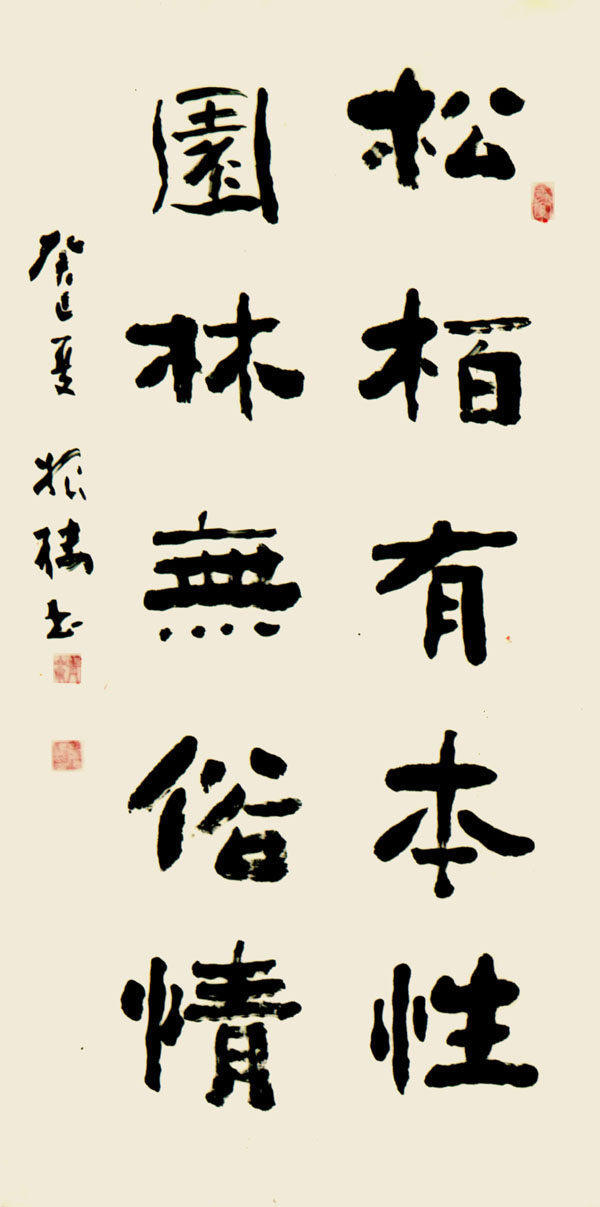 松栢有本性
園林無俗情
癸巳夏 振 书